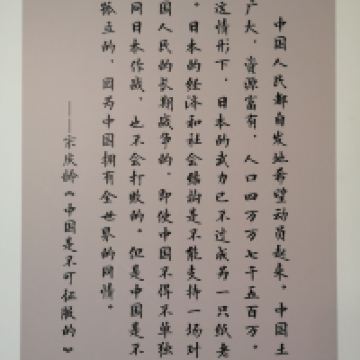 中国人民都自发地希望动员起来。中国土
广大，资源富有，人口四万万七千五百万。
这情形下，日本的武力已不过成为一只纸老
。日本的经济和社会结构是不能支持一场对
国人民的长期战争的。即使中国不得不单独
同日本作战，也不会打败的。但是中国是不
孤立的，因为中国拥有全世界的同情。
——宋庆龄《中国是不可征服的》